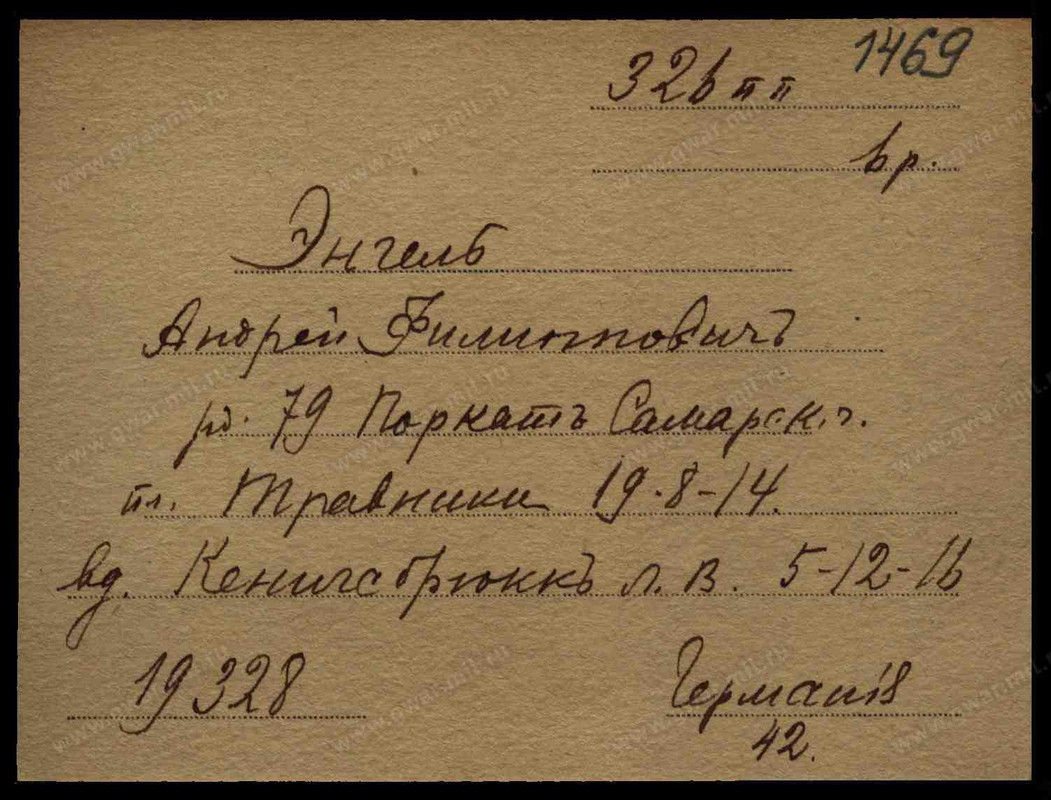 1469
326 пп
вр.
Энгель
Андрей Филипповичъ
р. 79 Поркатъ Самарск. г.
пл. Травники 19-8-14.
вд. Кенигсбрюккъ л. в. 5-12-16
19328
Германія
42.
www.gwar.mil.ru